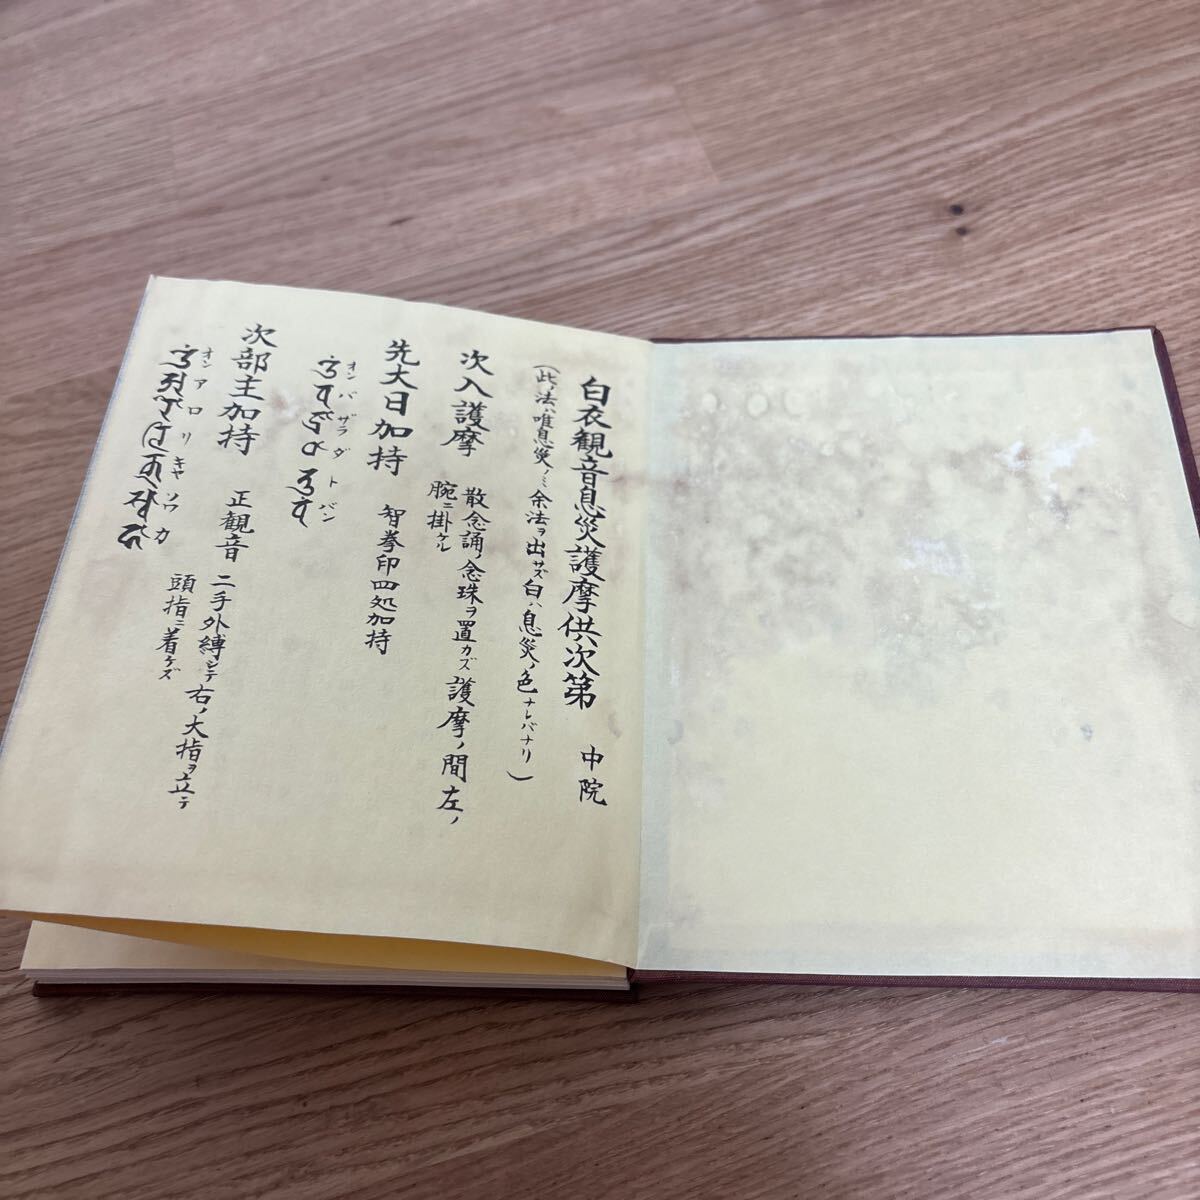 白衣観音息災護摩供次第　中院
(此ノ法ハ唯息災ノミ余法ヲ出サズ白ハ息災ノ色ナレバナリ)
次入護摩　散念誦ノ念珠ヲ置カズ護摩ノ間左ノ
腕ニ掛ケル
先大日加持　智拳印四処加持
オンバザラダトバン
次部主加持　正観音　二手外縛シテ右ノ大指ヲ立テ
頭指ニ着ケズ
オンアロリキャソワカ